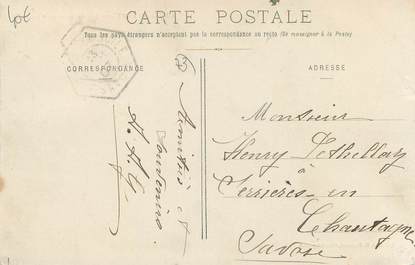 40€
CARTE POSTALE
Tous les pays étrangers n'acceptent pas la correspondance au recto (Se renseigner à la Poste)
CORRESPONDANCE
ADRESSE
Amitiés et
Souvenirs
Monsieur
Henry
à
Serrières-en
Chautagne
Savoie